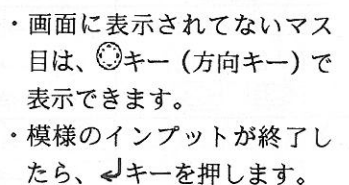 ・画面に表示されてないマス
目は、キー（方向キー）で
表示できます。
・模様のインプットが終了し
たら、↲キーを押します。